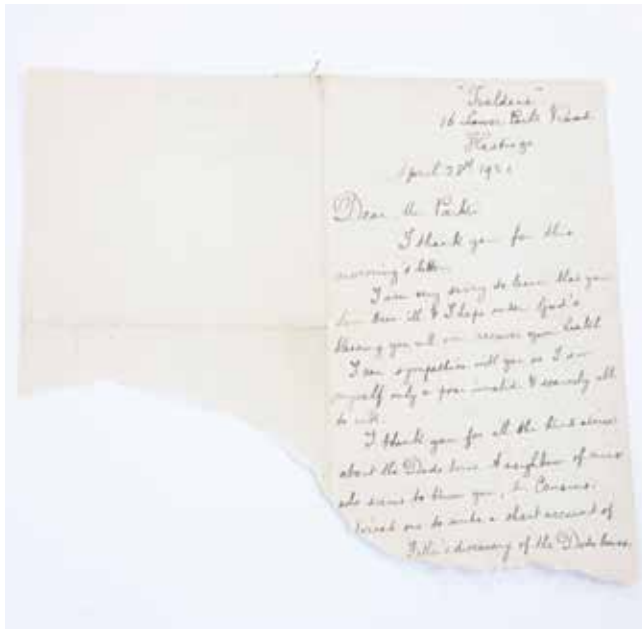 "Fieldens"
16 Lower Park Road
Hastings
April 28th 1921
Dear Mr Parker
I thank you for this
morning's letter.
I am very sorry to learn that you
have been ill & I hope under God's
blessing you will soon recover your health
I can sympathise with you as I am
myself only a poor invalid & scarcely able
to walk.
I thank you for all the kind
about the Dodo bones. A neighbour of mine
who seems to know you, Mr Cousens,
wished me to write a short account of
Father's discovery of the Dodo bones.